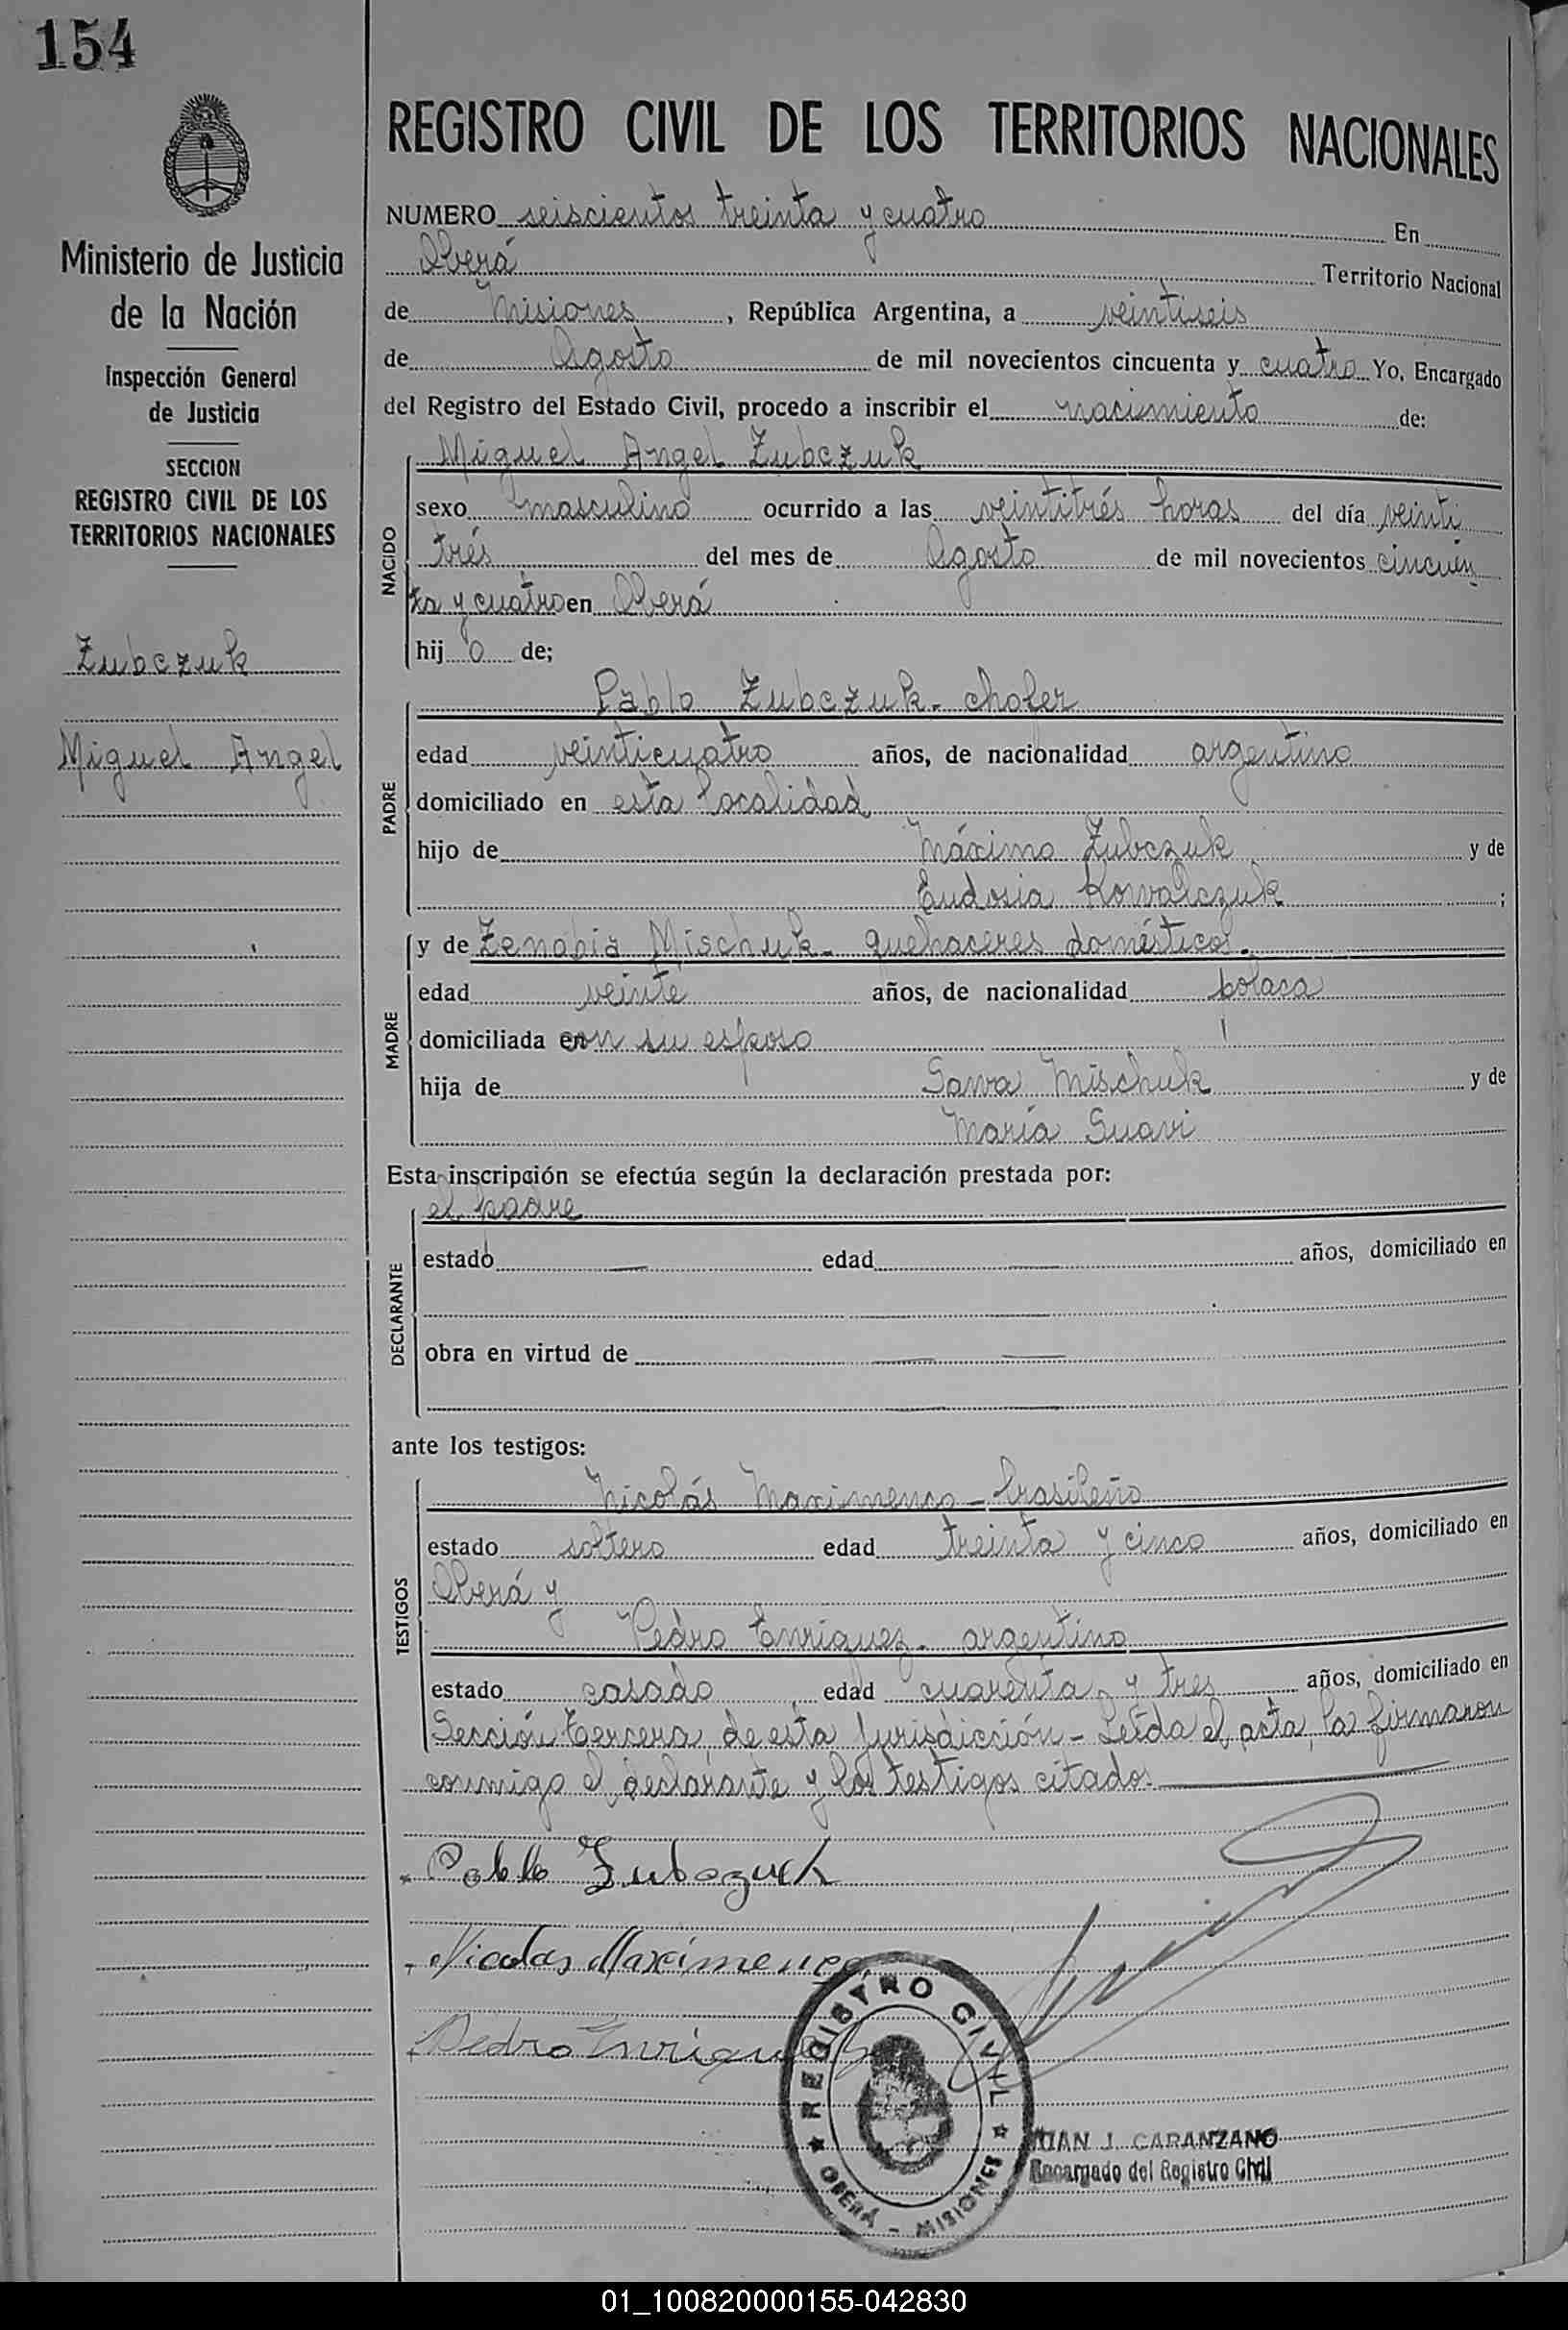 154
REGISTRO CIVIL DE LOS TERRITORIOS NACIONALES
Ministerio de Justicia
de la Nación
Inspección General
de Justicia
SECCION
REGISTRO CIVIL DE LOS
TERRITORIOS NACIONALES
Zubczuk
Miguel Angel
NUMERO seiscientos treinta y cuatro En
Oberá Territorio Nacional
de Misiones, República Argentina, a veintiseis
de Agosto de mil novecientos cincuenta y cuatro Yo, Encargado
del Registro del Estado Civil, procedo a inscribir el nacimiento de:
NACIDO
Miguel Angel Zubczuk
sexo masculino ocurrido a las veintitrés horas del día veinti
trés del mes de Agosto de mil novecientos cincuen
ta y cuatro en Oberá
hij o de;
PADRE
Pablo Zubczuk - chofer
edad veinticuatro años, de nacionalidad argentino
domiciliado en esta localidad
hijo de Máximo Zubczuk y de
Eudosia Kowalczuk ;
MADRE
y de Zenobia Mischuk - quehaceres domésticos.
edad veinte años, de nacionalidad polaca
domiciliada en con su esposo
hija de Sawa Mischuk y de
María Suavi
Esta inscripción se efectúa según la declaración prestada por:
DECLARANTE
el padre
estado — edad — años, domiciliado en
obra en virtud de — —
ante los testigos:
TESTIGOS
Nicolás Maximenco - brasileño
estado soltero edad treinta y cinco años, domiciliado en
Oberá y
Pedro Enriquez - argentino
estado casado edad cuarenta y tres años, domiciliado en
Sección Tercera de esta Jurisdicción - Leída el acta, la firmaron
conmigo el declarante y los testigos citados.
Pablo Zubczuk
Nicolas Maximenco
Pedro Enriquez
REGISTRO CIVIL
OBERÁ - MISIONES
JUAN J. CARANZANO
Encargado del Registro Civil
01_100820000155-042830